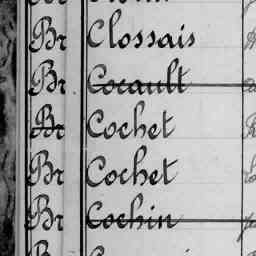 Br Clossais
Br Cocault
Br Cochet
Br Cochet
Br Cochin